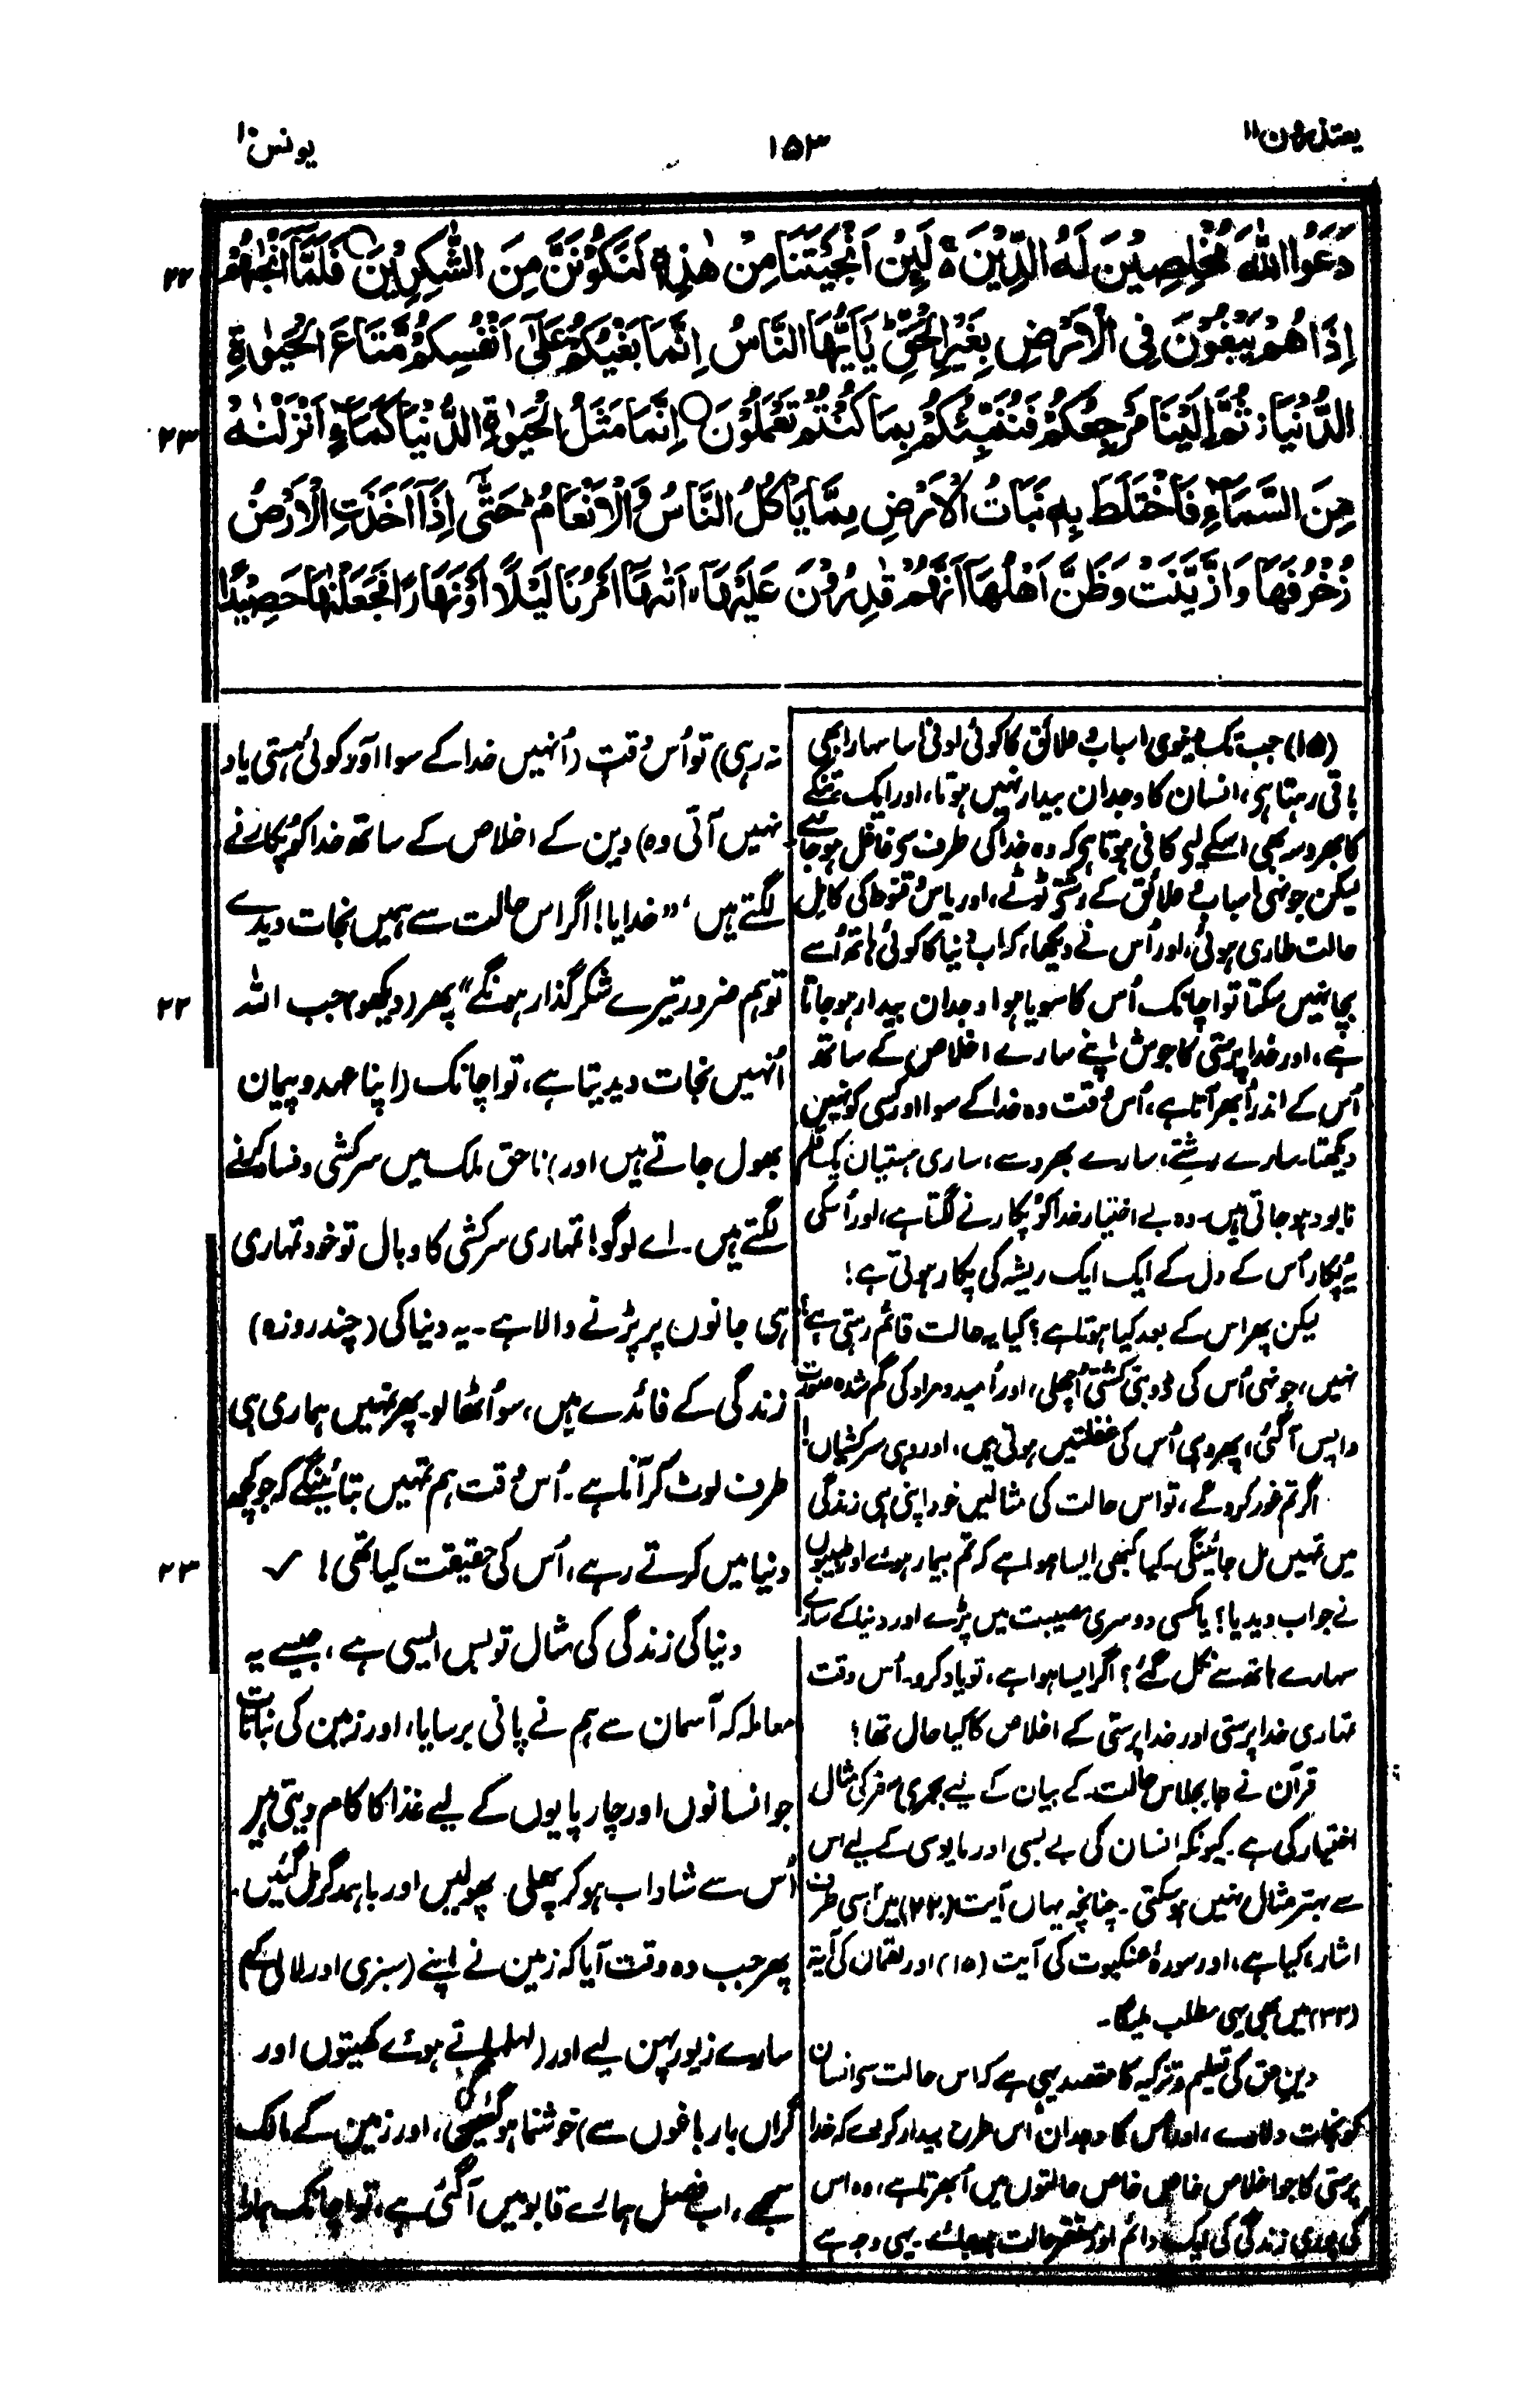 یعتذرون ۱۱
۱۵۳
یونس ۱۰
دَعَوُا اللّٰهَ مُخْلِصِيْنَ لَهُ الدِّيْنَ ۚ لَئِنْ اَنْجَيْتَنَا مِنْ هٰذِهٖ لَنَكُوْنَنَّ مِنَ الشّٰكِرِيْنَ ○ فَلَمَّآ اَنْجٰىهُمْ
۲۲
اِذَا هُمْ يَبْغُوْنَ فِى الْاَرْضِ بِغَيْرِ الْحَقِّ ۭ يٰٓاَيُّهَا النَّاسُ اِنَّمَا بَغْيُكُمْ عَلٰٓى اَنْفُسِكُمْ مَّتَاعَ الْحَيٰوةِ
الدُّنْيَا ۡ ثُمَّ اِلَيْنَا مَرْجِعُكُمْ فَنُنَبِّئُكُمْ بِمَا كُنْتُمْ تَعْمَلُوْنَ ○ اِنَّمَا مَثَلُ الْحَيٰوةِ الدُّنْيَا كَمَآءٍ اَنْزَلْنٰهُ
۲۳
مِنَ السَّمَآءِ فَاخْتَلَطَ بِهٖ نَبَاتُ الْاَرْضِ مِمَّا يَاْكُلُ النَّاسُ وَالْاَنْعَامُ ۭ حَتّٰٓى اِذَآ اَخَذَتِ الْاَرْضُ
زُخْرُفَهَا وَازَّيَّنَتْ وَظَنَّ اَهْلُهَآ اَنَّهُمْ قٰدِرُوْنَ عَلَيْهَآ ۙ اَتٰىهَآ اَمْرُنَا لَيْلًا اَوْ نَهَارًا فَجَعَلْنٰهَا حَصِيْدًا
(۱۵) جب تک دنیوی اسباب و علائق کا کوئی ادنیٰ سا سہارا بھی
باقی رہتا ہی، انسان کا وجدان بیدار نہیں ہوتا، اور ایک تنکے
کا بھروسہ بھی اسکے لیے کافی ہوتا ہی کہ وہ خدا کی طرف سے غافل ہو جائے
لیکن جونہی اسباب و علائق کے رشتے ٹوٹے، اور یاس و قنوط کی کامل
حالت طاری ہوئی، اور اُس نے دیکھا، کہ اب دنیا کا کوئی ہاتھ اُسے
بچا نہیں سکتا تو اچانک اُس کا سویا ہوا وجدان بیدار ہو جاتا
ہے، اور خدا پرستی کا جوش اپنے سارے اخلاص کے ساتھ
اُس کے اندر اُبھر آتا ہے، اُس وقت وہ خدا کے سوا اور کسی کو نہیں
دیکھتا۔ سارے رشتے، سارے بھروسے، ساری ہستیاں یک قلم
نابود ہو جاتی ہیں۔ وہ بے اختیار خدا کو پکارنے لگتا ہے، اور اُسکی
یہ پکار اُس کے دل کے ایک ایک ریشہ کی پکار ہوتی ہے!
لیکن پھر اس کے بعد کیا ہوتا ہے؟ کیا یہ حالت قائم رہتی ہے؟
نہیں، جونہی اُس کی ڈوبتی کشتی اُچھلی، اور اُمید و مراد کی گم شدہ صورت
واپس آ گئی، پھر وہی اُس کی غفلتیں ہوتی ہیں، اور وہی سرکشیاں!
اگر تم غور کرو گے، تو اس حالت کی مثالیں خود اپنی ہی زندگی
میں تمہیں مل جائینگی۔ کیا کبھی ایسا ہوا ہے کہ تم بیمار ہوئے اور طبیبوں
نے جواب دیدیا؟ یا کسی دوسری مصیبت میں پڑے اور دنیا کے سارے
سہارے ہاتھ سے نکل گئے؟ اگر ایسا ہوا ہے، تو یاد کرو۔ اُس وقت
تمہاری خدا پرستی اور خدا پرستی کے اخلاص کا کیا حال تھا؟
قرآن نے جا بجا اس حالت کے بیان کے لیے بحری سفر کی مثال
اختیار کی ہے۔ کیونکہ انسان کی بے بسی اور مایوسی کے لیے اس
سے بہتر مثال نہیں ہو سکتی۔ چنانچہ یہاں آیت (۲۲) میں اسی طرف
اشارہ کیا ہے، اور سورۂ عنکبوت کی آیت (۱۵) اور لقمان کی آیۃ
(۳۲) میں بھی یہی مطلب ملیگا۔
دین حق کی تعلیم و تزکیہ کا مقصد یہی ہے کہ اس حالت سے انسان
کو نجات دلادے، اور اُس کا وجدان اس طرح بیدار کر دے کہ خدا
پرستی کا جو اخلاص خاص خاص حالتوں میں اُبھرتا ہے، وہ اس
کی پوری زندگی کی ایک دائم اور مستقر حالت ہو جائے۔ یہی وجہ ہے
نہ رہی) تو اُس وقت (اُنہیں خدا کے سوا اور کوئی ہستی یاد
نہیں آتی وہ) دین کے اخلاص کے ساتھ خدا کو پکارنے
لگتے ہیں، ”خدایا! اگر اس حالت سے ہمیں نجات دیدے
تو ہم ضرور تیرے شکر گذار ہونگے“ پھر (دیکھو) جب اللہ
۲۲
اُنہیں نجات دیدیتا ہے، تو اچانک (اپنا عہد و پیمان
بھول جاتے ہیں اور) ناحق ملک میں سرکشی و فساد کرنے
لگتے ہیں۔ اے لوگو! تمہاری سرکشی کا وبال تو خود تمہاری
ہی جانوں پر پڑنے والا ہے۔ یہ دنیا کی (چند روزہ)
زندگی کے فائدے ہیں، سو اُٹھا لو۔ پھر تمہیں ہماری ہی
طرف لوٹ کر آنا ہے۔ اُس وقت ہم تمہیں بتائینگے کہ جو کچھ
دنیا میں کرتے رہے، اُس کی حقیقت کیا تھی! ✓
۲۳
دنیا کی زندگی کی مثال تو بس ایسی ہے، جیسے یہ
معاملہ کہ آسمان سے ہم نے پانی برسایا، اور زمین کی نباتات
جو انسانوں اور چارپایوں کے لیے غذا کا کام دیتی ہیں
اُس سے شاداب ہو کر پھلی پھولیں اور باہمدگر مل گئیں۔
پھر جب وہ وقت آیا کہ زمین نے اپنے (سبزی اور لالی کے)
سارے زیور پہن لیے اور (لہلہاتے ہوئے کھیتوں اور
گراں بار باغوں سے) خوشنما ہو گئی، اور زمین کے مالک
سمجھے، اب فصل ہمارے قابو میں آ گئی ہے، تو اچانک ہمارا